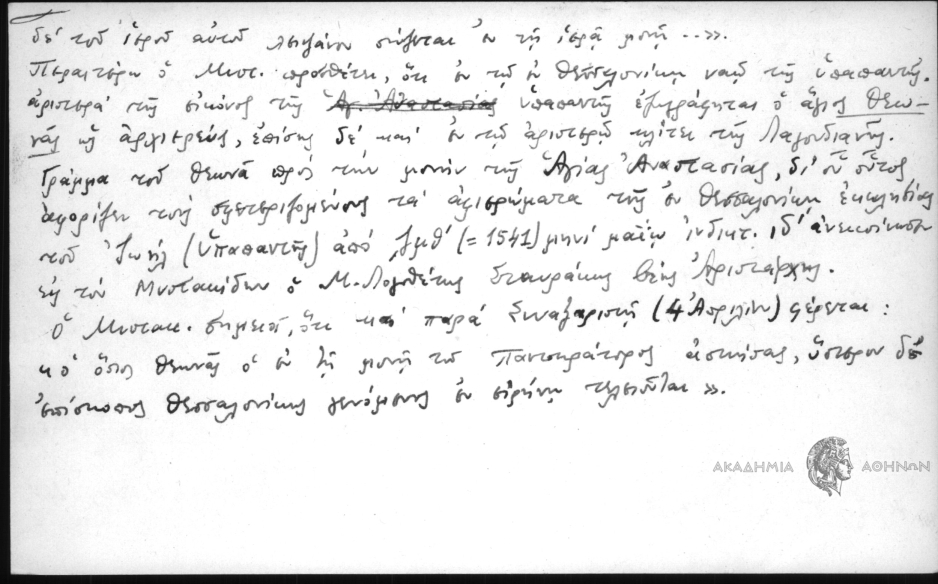 δὲ τοῦ ἱεροῦ αὐτοῦ λειψάνου σώζεται ἐν τῇ ἱερᾷ μονῇ ...».
Περαιτέρω ὁ Μυστ. προσθέτει, ὅτι ἐν τῷ ἐν Θεσσαλονίκῃ ναῷ τῆς Ὑπαπαντῆς.
ἀριστερὰ τῆς εἰκόνος τῆς Ἁγ. Ἀναστασίας Ὑπαπαντῆς ἐζωγράφηται ὁ ἅγιος Θεω-
νᾶς ὡς ἀρχιερεύς, ἐπίσης δὲ καὶ ἐν τῷ ἀριστερῷ κλίτει τῆς Λαγουδιανῆς.
Γράμμα τοῦ Θεωνᾶ πρὸς τὴν μονὴν τῆς Ἁγίας Ἀναστασίας, δι' οὗ οὗτος
ἀφορίζει τοὺς σφετεριζομένους τὰ ἀφιερώματα τῆς ἐν Θεσσαλονίκῃ ἐκκλησίας
τοῦ (Ὑπαπαντῆς) ἀπὸ ͵ζμθ' (= 1541) μηνὶ μαΐῳ ἰνδικτ. ιδ' ἀνεκοίνωσεν
εἰς τὸν Μυστακίδην ὁ Μ. Λογοθέτης Σταυράκης Βέης Ἀριστάρχης.
Ὁ Μυστακ. σημειοῖ, ὅτι καὶ παρὰ Συναξαριστῇ (4 Ἀπριλίου) φέρεται:
«ὁ ὅσιος Θεωνᾶς ὁ ἐν τῇ μονῇ τοῦ Παντοκράτορος ἀσκήσας, ὕστερον δὲ
ἐπίσκοπος Θεσσαλονίκης γενόμενος ἐν εἰρήνῃ τελειοῦται».
ΑΚΑΔΗΜΙΑ ΑΘΗΝΩΝ